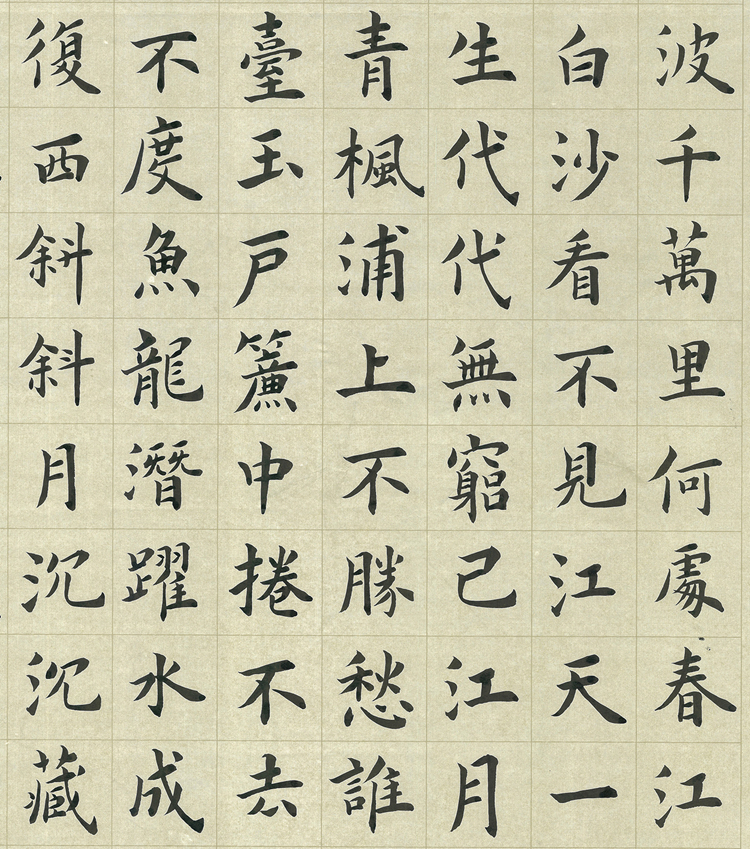 波千萬里何處春江
白沙看不見江天一
生代代無窮已江月
青楓浦上不勝愁誰
臺玉戶簾中捲不去
不度魚龍潛躍水成
復西斜斜月沉沉藏